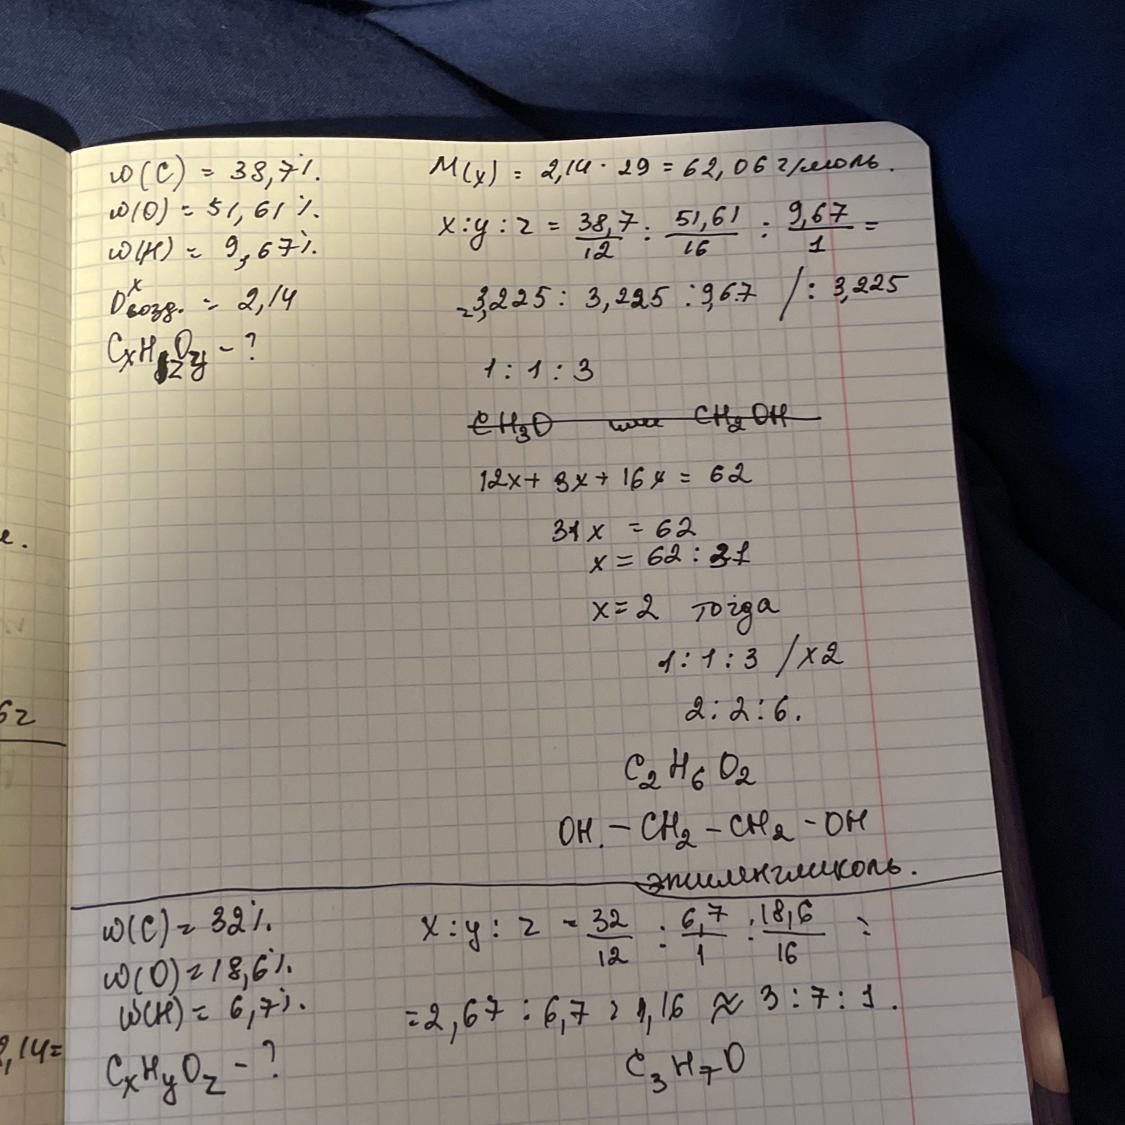 е.
6г
2,14=
ω(C) = 38,7%.
ω(O) = 51,61%.
ω(H) = 9,67%.
Dˣвозд. = 2,14
CₓH𝓏Oᵧ - ?
M(x) = 2,14 · 29 = 62,06 г/моль.
x : y : z = 38,7/12 : 51,61/16 : 9,67/1 =
= 3,225 : 3,225 : 9,67 / : 3,225
1 : 1 : 3
CH₃O или CH₂OH
12x + 3x + 16x = 62
31x = 62
x = 62 : 31
x = 2 тогда
1 : 1 : 3 / x2
2 : 2 : 6.
C₂H₆O₂
OH. – CH₂ – CH₂ – OH
этиленгликоль.
ω(C) = 32%.
ω(O) = 18,6%.
ω(H) = 6,7%.
CₓHᵧO𝓏 - ?
x : y : z = 32/12 : 6,7/1 : 18,6/16 =
= 2,67 : 6,7 : 1,16 ≈ 3 : 7 : 1.
C₃H₇O